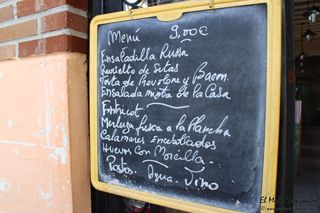 Menú 9,00€
Ensaladilla Russa
Revuelto de Setas
Torta de Provolone y Bacon
Ensalada mixta de la Casa
Entrecot
Merluza fresca a la Plancha
Calamares Encebollados
Huevos Con Morcilla
Postre. Agua. Vino